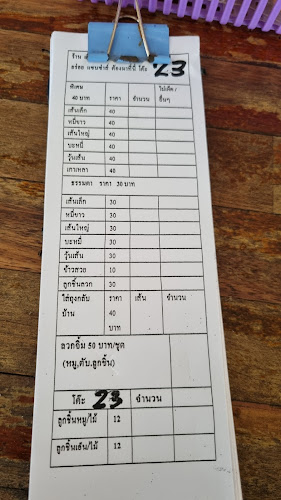 ร้าน
อร่อย แซ่บซ่าส์ ต้องมาที่นี่ โต๊ะ 23
พิเศษ
40 บาท ราคา จำนวน ไม่เผ็ด / อื่นๆ
เส้นเล็ก 40
หมี่ขาว 40
เส้นใหญ่ 40
บะหมี่ 40
วุ้นเส้น 40
เกาเหลา 40
ธรรมดา ราคา 30 บาท
เส้นเล็ก 30
หมี่ขาว 30
เส้นใหญ่ 30
บะหมี่ 30
วุ้นเส้น 30
ข้าวสวย 10
ลูกชิ้นลวก 30
ใส่ถุงกลับ ราคา เส้น จำนวน
บ้าน 40
บาท
ลวกจิ้ม 50 บาท/ชุด
(หมู,ตับ,ลูกชิ้น)
โต๊ะ 23 จำนวน
ลูกชิ้นหมู/ไม้ 12
ลูกชิ้นเอ็น/ไม้ 12